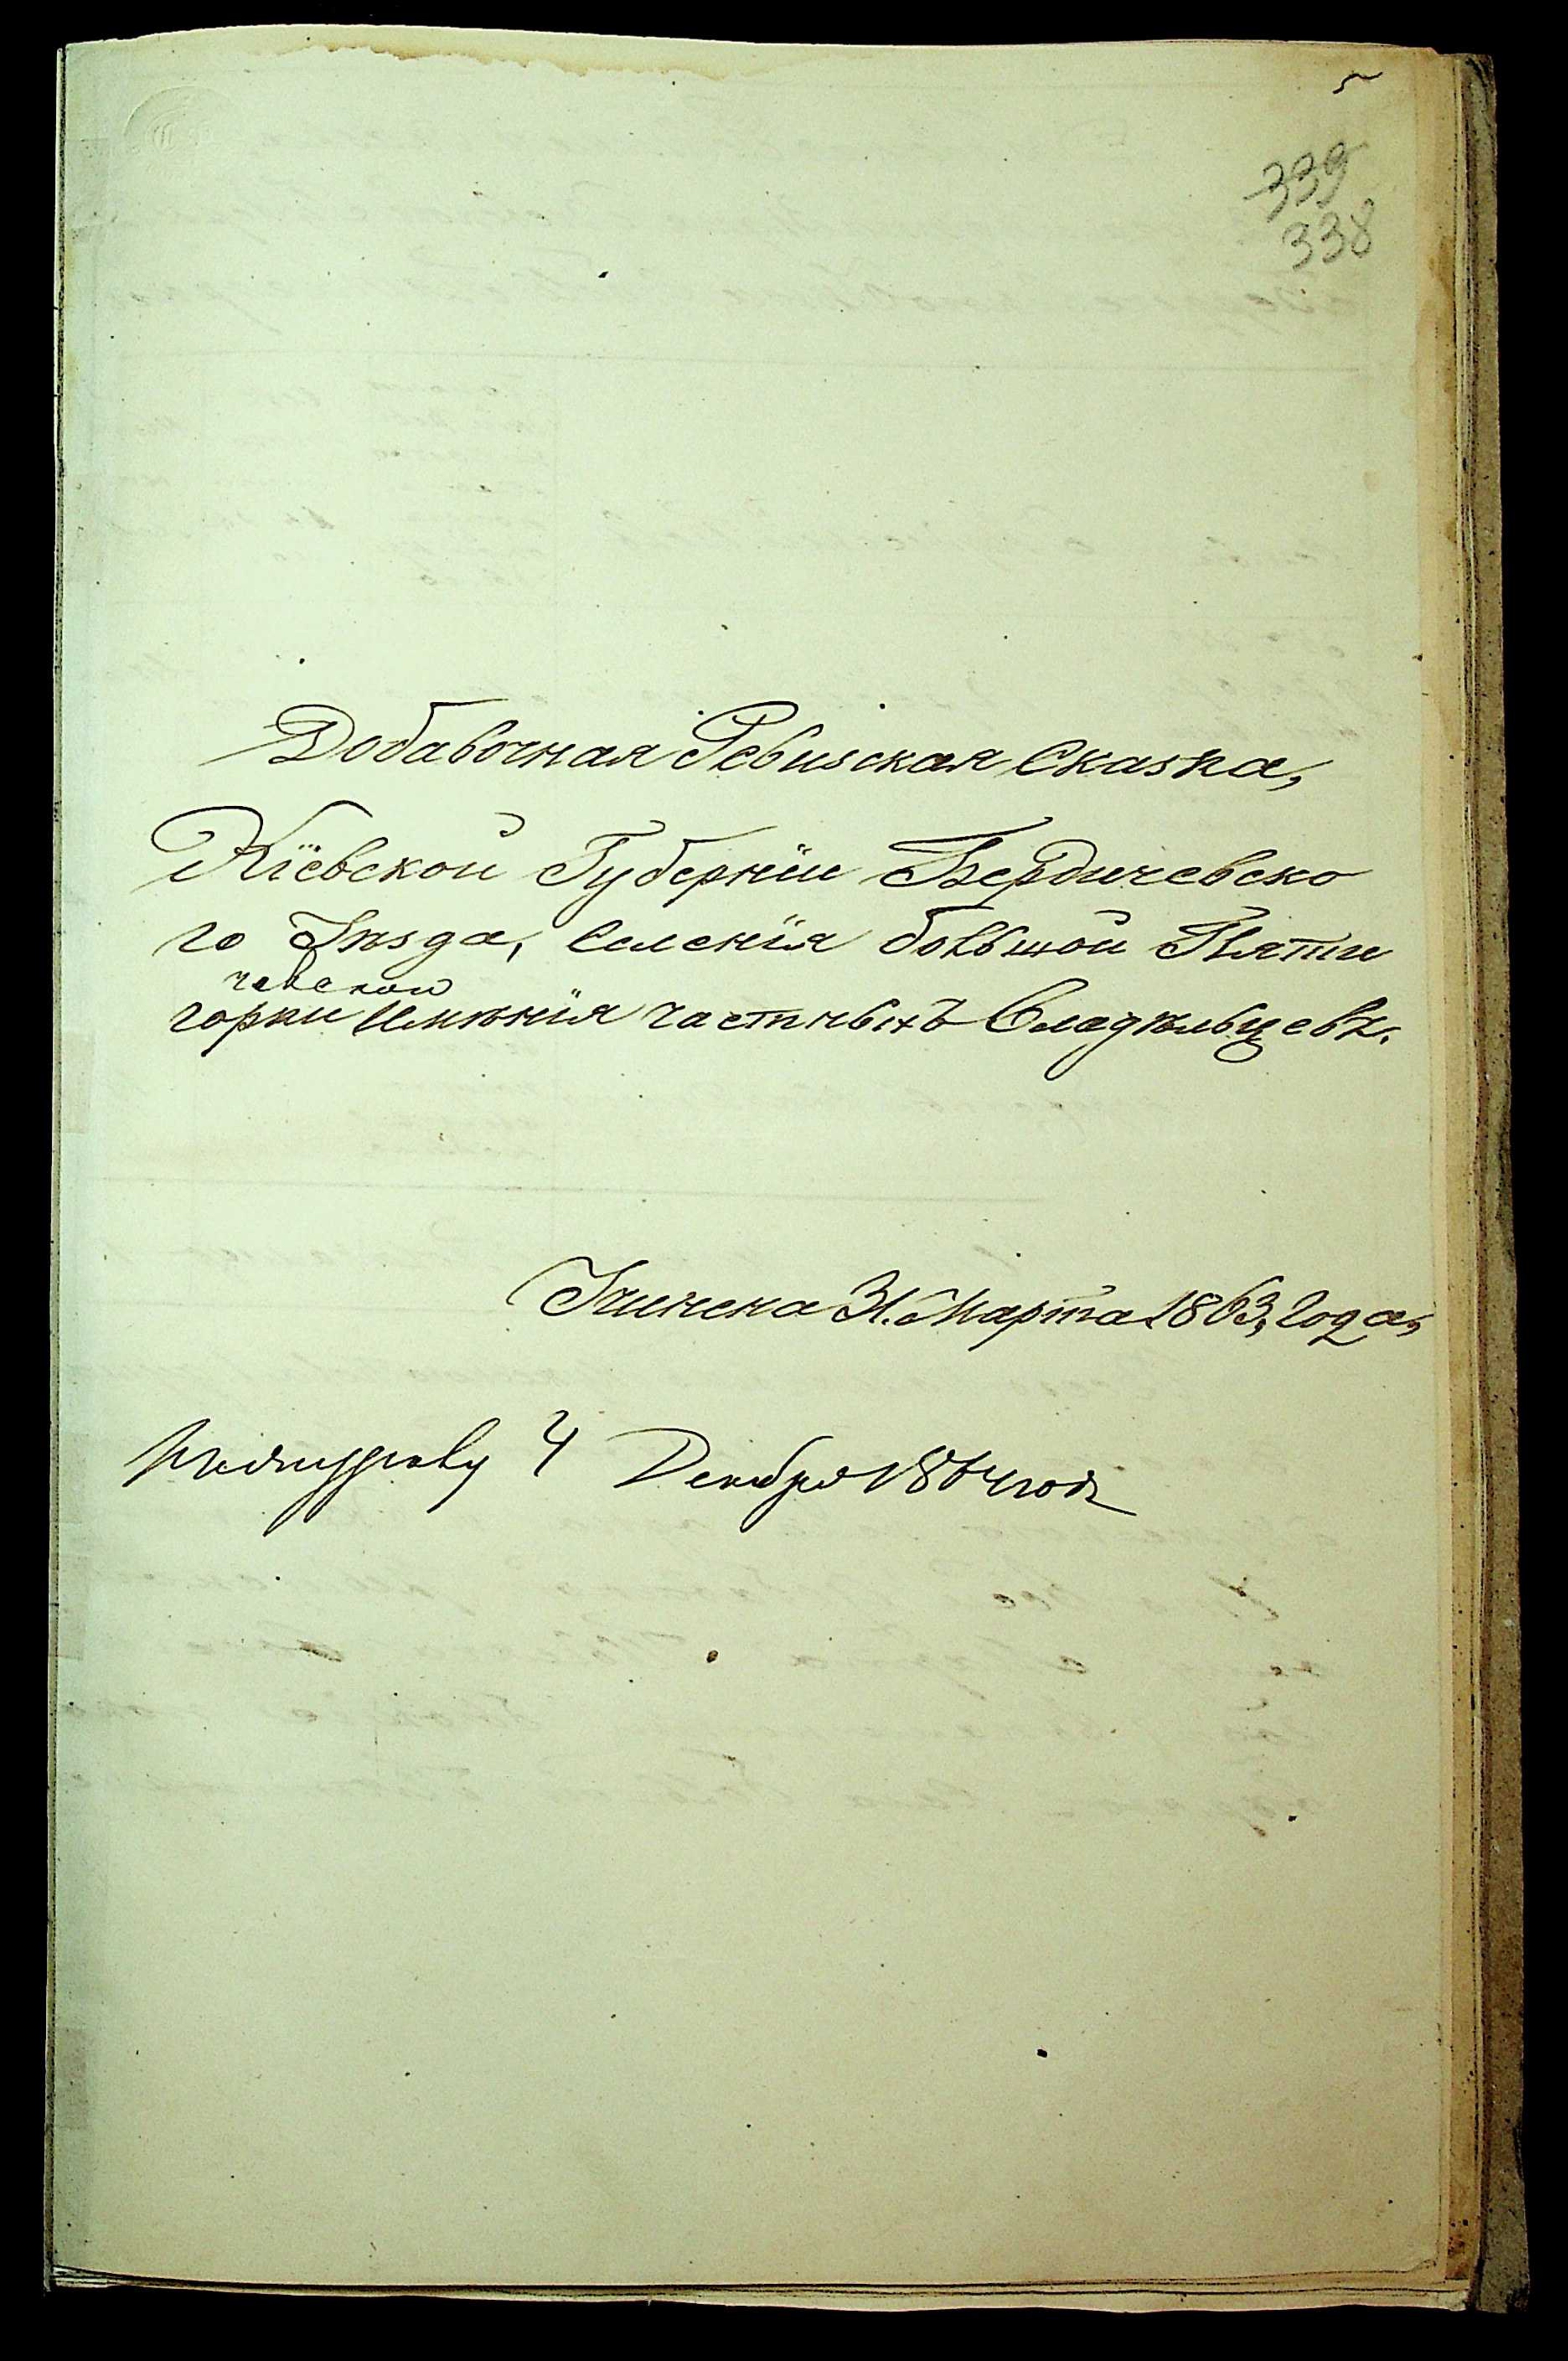 5
339
338
Добавочная Ревизская Сказка,
Кіевской Губерніи Бердичевско
го Уѣзда, Селенія большой Пяти
горки имѣнія частныхъ Владѣльцевъ.
Учинена 31. Марта 1863, года,
4 Декабря 1864 года